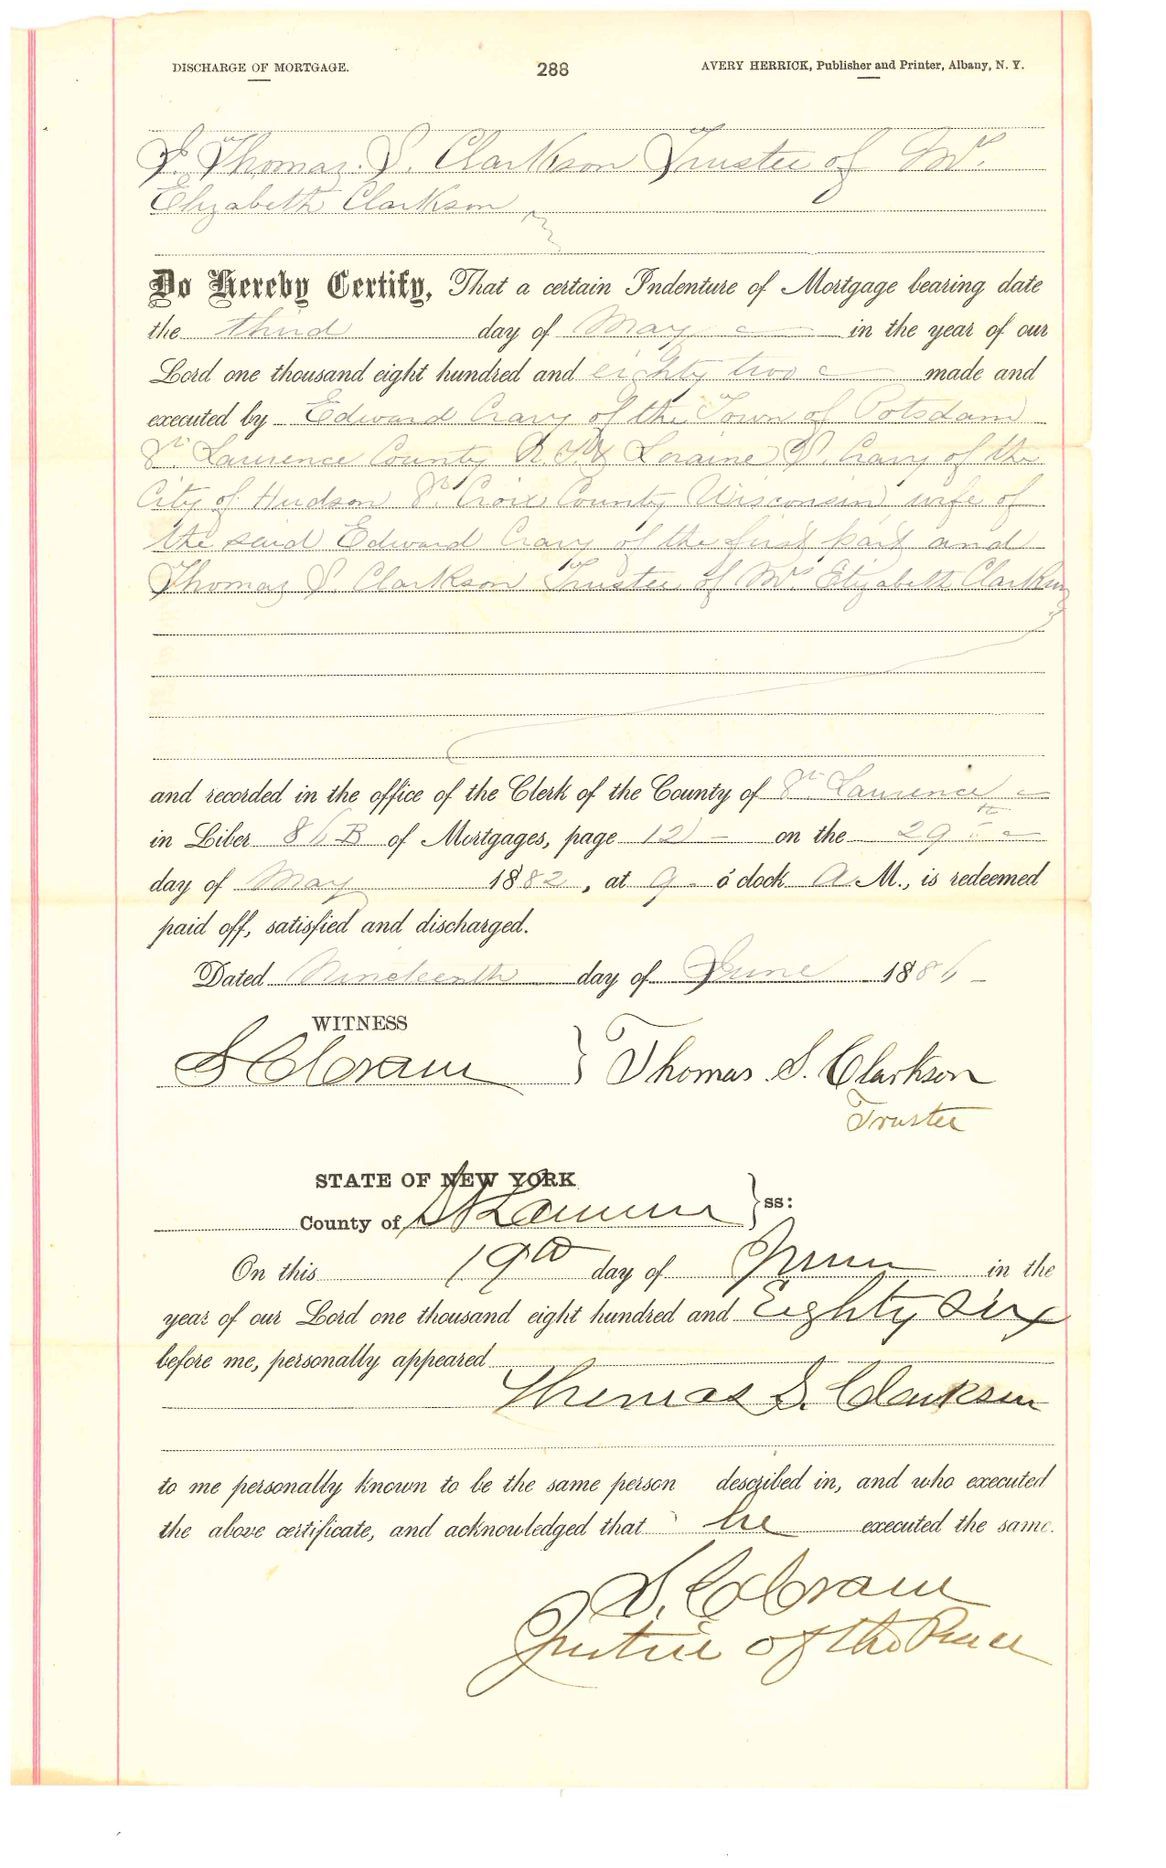 DISCHARGE OF MORTGAGE. 288 AVERY HERRICK, Publisher and Printer, Albany, N. Y.
I. Thomas. S. Clarkson Trustee of Mrs.
Elizabeth Clarkson
Do Hereby Certify, That a certain Indenture of Mortgage bearing date
the third day of May in the year of our
Lord one thousand eight hundred and eighty two made and
executed by Edward Crary of the Town of Potsdam
St. Lawrence County N.Y. & Loraine Crary of the
City of Hudson St. Croix County Wisconsin wife of
the said Edward Crary of the first part and
Thomas S. Clarkson Trustee of Mrs Elizabeth Clarkson
and recorded in the office of the Clerk of the County of St. Lawrence
in Liber 86 B of Mortgages, page on the 29th
day of May 1882, at 9 o'clock A M., is redeemed
paid off, satisfied and discharged.
Dated Nineteenth day of June 1886
WITNESS
Thomas. S. Clarkson
Trustee
STATE OF NEW YORK
County of St Lawrence ss:
On this 19th day of June in the
year of our Lord one thousand eight hundred and Eighty Six
before me, personally appeared
Thomas S. Clarkson
to me personally known to be the same person described in, and who executed
the above certificate, and acknowledged that he executed the same.
Justice of the Peace